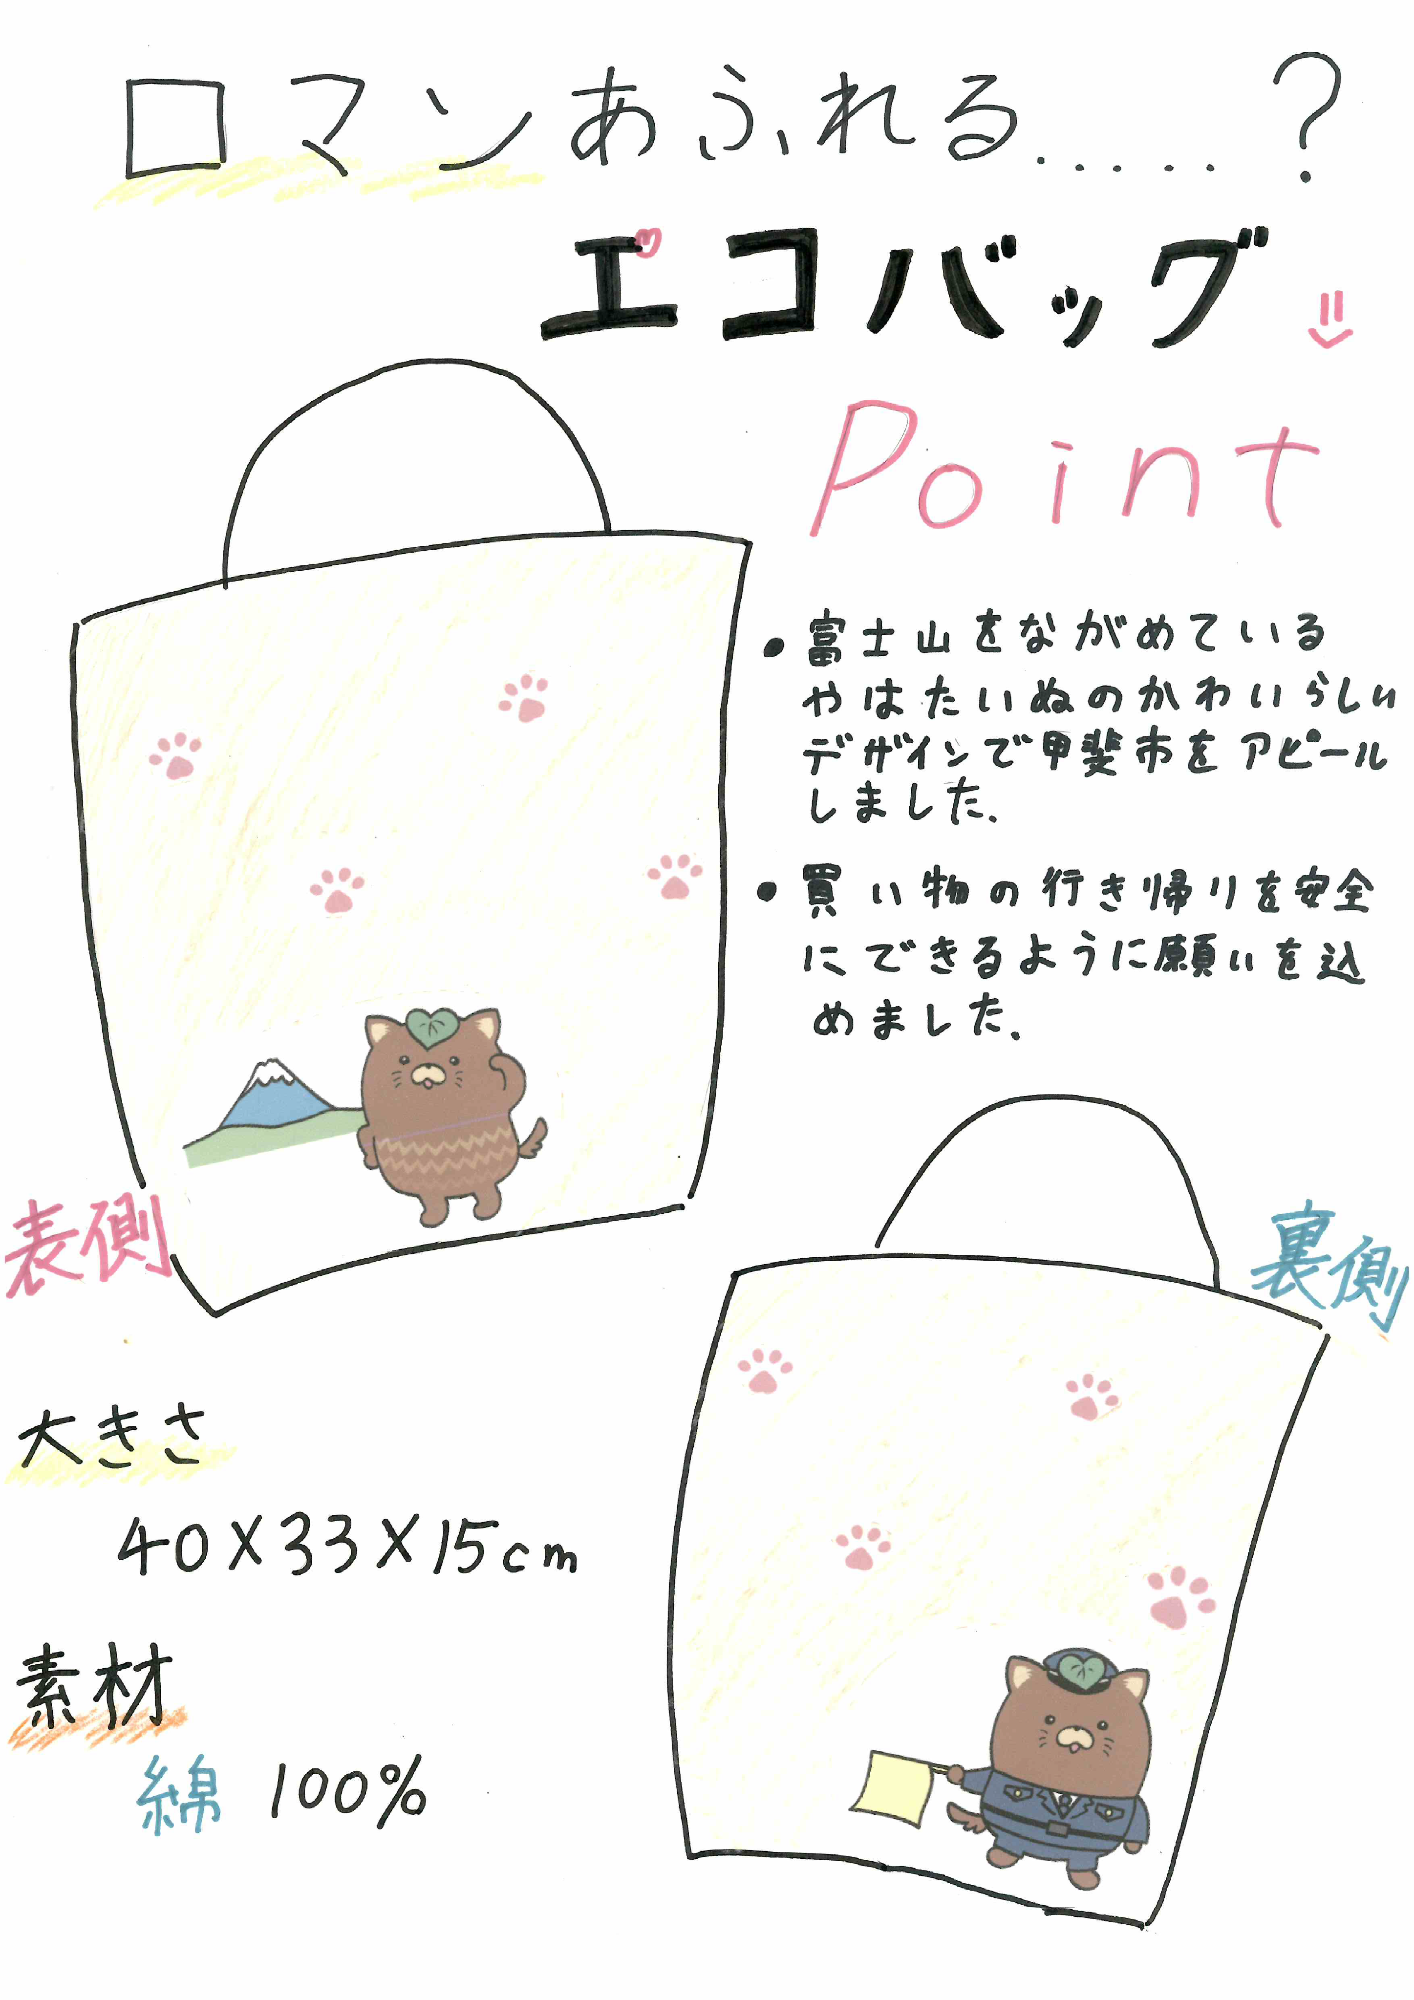 ロマンあふれる.....?
エコバッグ
Point
・富士山をながめている
やはたいぬのかわいらしい
デザインで甲斐市をアピール
しました.
・買い物の行き帰りを安全
にできるように願いを込
めました.
表側
裏側
大きさ
40×33×15cm
素材
綿 100%